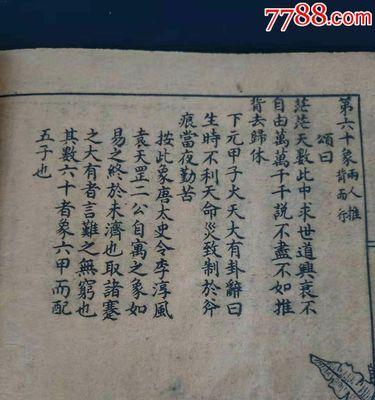 7788.com
第六十象 兩人推背而行
頌曰
茫茫天數此中求世道興衰不
自由萬萬千千說不盡不如推
背去歸休
下元甲子火天大有卦辭曰
生時不利天命災致制於斧
痕當夜勤苦
按此象唐太史令李淳風
袁天罡二公自寓之象如
易之終於未濟也取諸蹇
之大有者言難之無窮也
其數六十者象六甲而配
五子也